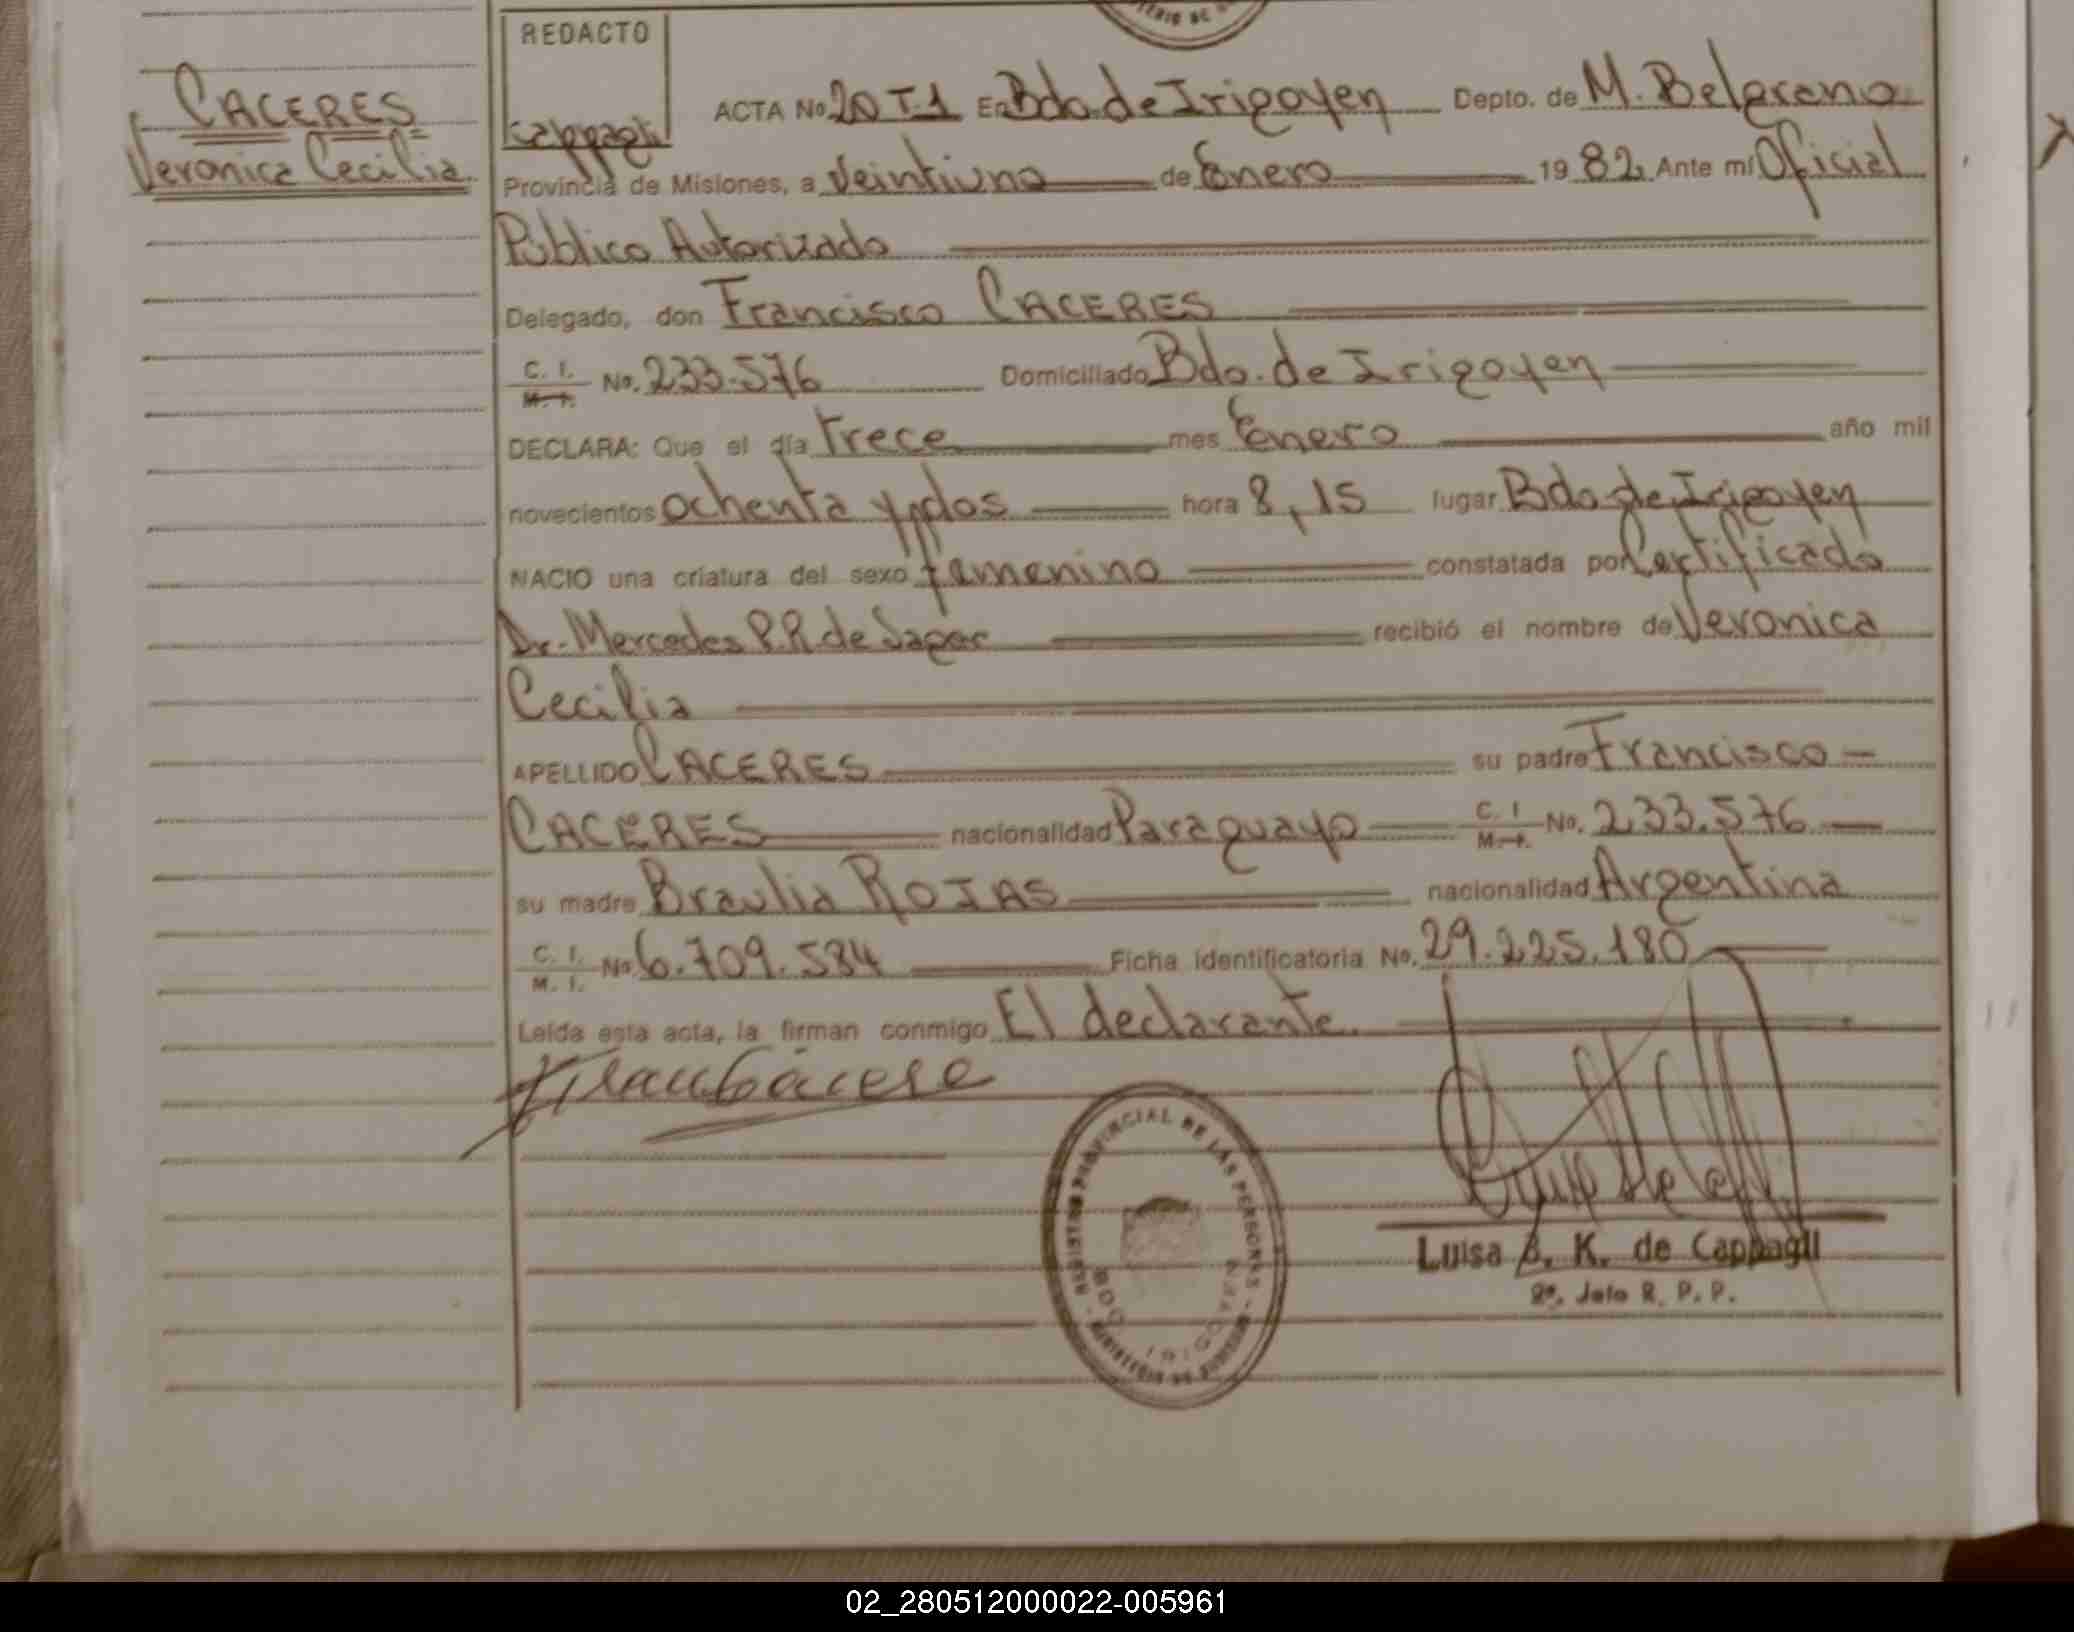 CACERES
Veronica Cecilia
REDACTO
Cappagli
ACTA No. 20 T.1 En Bdo. de Irigoyen Depto. de M. Belgrano
Provincia de Misiones, a veintiuno de Enero 19 82. Ante mí Oficial
Público Autorizado
Delegado, don Francisco CACERES
C. I. M. I. No. 233.576 Domiciliado Bdo. de Irigoyen
DECLARA: Que el día trece mes Enero año mil
novecientos ochenta y dos hora 8,15 lugar Bdo de Irigoyen
NACIO una criatura del sexo femenino constatada por Certificado
Dr. Mercedes P.R. de Sagar recibió el nombre de Veronica
Cecilia
APELLIDO CACERES su padre Francisco
CACERES nacionalidad Paraguayo C. I M. I. No. 233.576
su madre Braulia ROJAS nacionalidad Argentina
C. I. M. I. No 6.709.584 Ficha identificatoria No. 29.225.180
Leída esta acta, la firman conmigo El declarante.
REGISTRO PROVINCIAL DE LAS PERSONAS - MINISTERIO DE GOBIERNO -
BDO. IRIGOYEN
Luisa B. K. de Cappagli
2º. Jefe R. P. P.
02_280512000022-005961